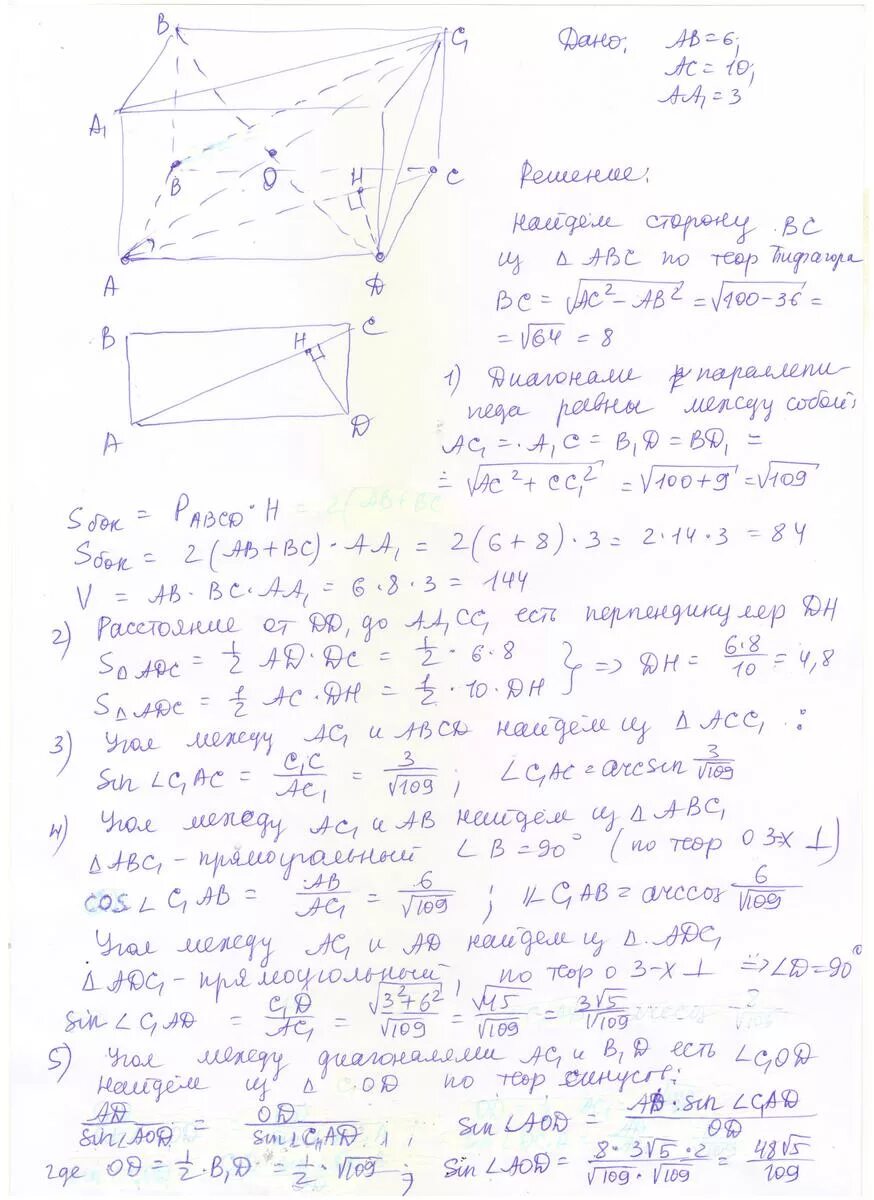 B
C₁
A₁
B
O
H
C
A
D
Дано: AB = 6;
AC = 10;
AA₁ = 3
Решение:
найдём сторону BC
из Δ ABC по теор Пифагора
BC = √(AC² − AB²) = √(100 − 36) =
= √64 = 8
B
H
C
A
D
1) Диагонали параллепи-
педа равны между собой:
AC₁ = A₁C = B₁D = BD₁ =
= √(AC² + CC₁²) = √(100 + 9) = √109
Sбок = P ABCD · H = 2(AB + BC
Sбок = 2(AB + BC) · AA₁ = 2(6 + 8) · 3 = 2 · 14 · 3 = 84
V = AB · BC · AA₁ = 6 · 8 · 3 = 144
2) Расстояние от DD₁ до AA₁CC₁ есть перпендикуляр DH
S Δ ADC = 1/2 AD · DC = 1/2 · 6 · 8
S Δ ADC = 1/2 AC · DH = 1/2 · 10 · DH } => DH = 6·8/10 = 4,8
3) Угол между AC₁ и ABCD найдём из Δ ACC₁ :
sin ∠C₁AC = C₁C/AC₁ = 3/√109 ; ∠C₁AC = arcsin 3/√109
4) Угол между AC₁ и AB найдём из Δ ABC₁
Δ ABC₁ - прямоугальный ∠B = 90° (по теор о 3-х ⊥)
cos ∠C₁AB = AB/AC₁ = 6/√109 ; ∠C₁AB = arccos 6/√109
Угол между AC₁ и AD найдём из Δ ADC₁
Δ ADC₁ - прямоугольный, по теор о 3-х ⊥ => ∠D = 90°
sin ∠C₁AD = C₁D/AC₁ = √(3² + 6²)/√109 = √45/√109 = 3√5/√109
5) Угол между диагоналями AC₁ и B₁D есть ∠C₁OD
найдём из Δ C₁OD по теор синусов:
AD/sin∠AOD = OD/sin∠C₁AD ; sin∠AOD = AD · sin∠C₁AD/OD
где OD = 1/2 · B₁D = 1/2 · √109 ; sin∠AOD = 8 · 3√5 · 2/√109 · √109 = 48√5/109